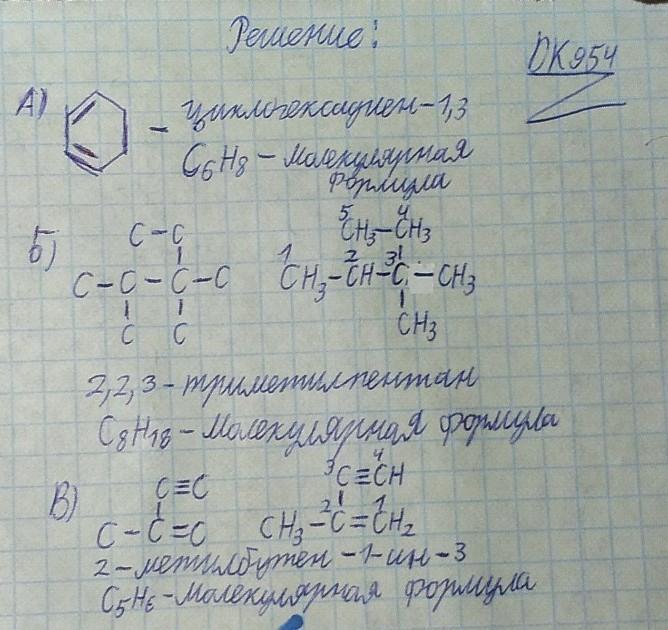 Решение:
DK954
А)
– циклогексадиен-1,3
C6H8 – Молекулярная
формула
Б)
C–C
C–C–C–C
C C
5 4
CH3–CH3
1 2 3
CH3–CH–C–CH3
CH3
2,2,3-триметилпентан
C8H18 – Молекулярная формула
В)
C≡C
C–C=C
3 4
C≡CH
2 1
CH3–C=CH2
2-метилбутен-1-ин-3
C5H6-Молекулярная формула